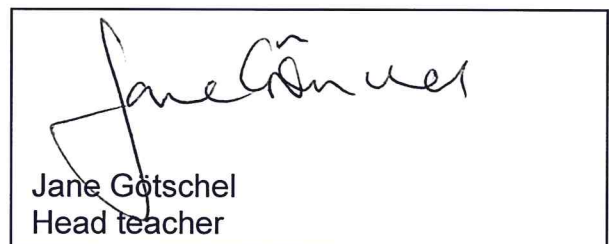 Jane Götschel
Jane Götschel
Head teacher